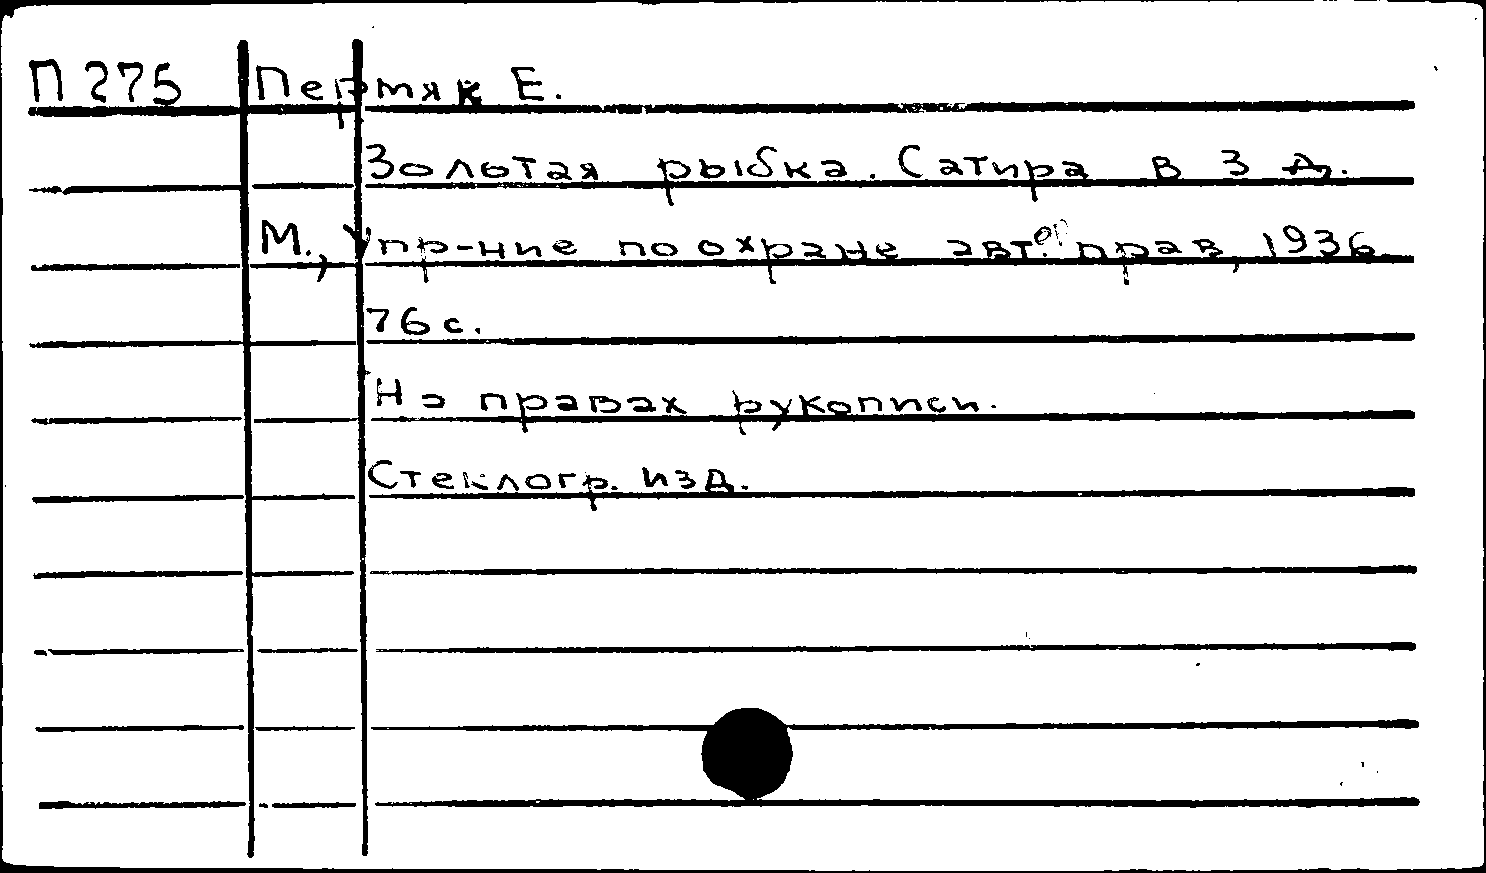 П 275 Пермяк Е.
Золотая рыбка. Сатира в 3 д.
М., Упр-ние по охране авт. прав, 1936.
76 с.
На правах рукописи.
Стеклогр. изд.